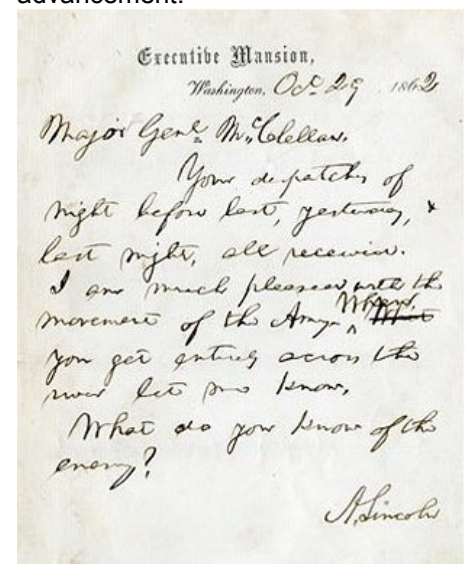 advancement.
Executive Mansion,
Washington, Oct 29 1862
Major Genl. McClellan.
Your despatches of
night before last, yesterday, &
last night, all received.
I am much pleased with the
movement of the Army. When
you get entirely across the
river let me know.
What do you know of the
enemy?
A. Lincoln